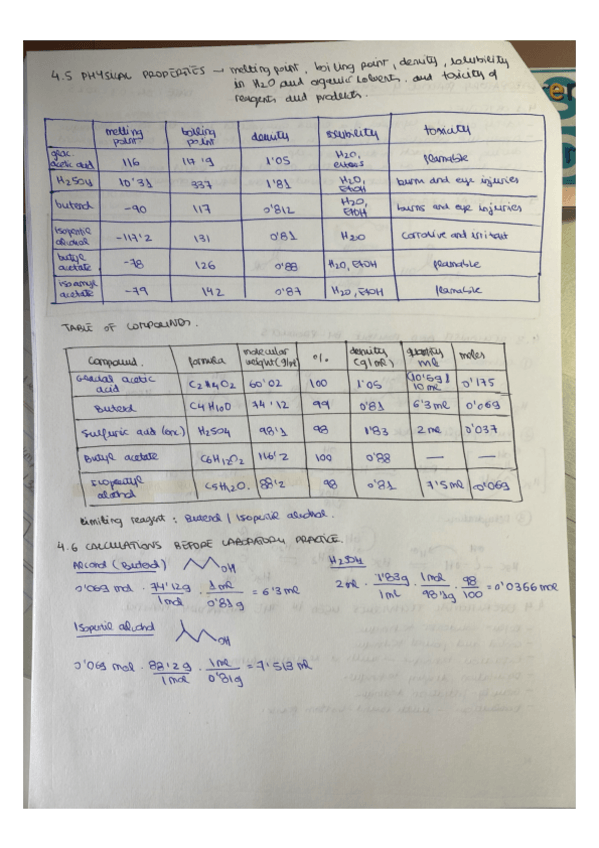 4.5 PHYSICAL PROPERTIES → melting point, boiling point, density, solubility
in H2O and organic solvents. and toxicity of
reagents and products.
melting point | boiling point | density | solubility | toxicity
glac. acetic acid | 116 | 117'9 | 1'05 | H2O, | flamable
H2SO4 | 10'31 | 337 | 1'81 | H2O, EtOH | burn and eye injuries
butanol | -90 | 117 | 0'812 | H2O, EtOH | burns and eye injuries
isopentil alcohol | -117'2 | 131 | 0'81 | H2O | corrotive and irritant
butyl acetate | -78 | 126 | 0'88 | H2O, EtOH | flamable
isoamyl acetate | -79 | 142 | 0'87 | H2O, EtOH | flamable
TABLE OF COMPOUNDS.
Compound. | formula | molecular weight (g/mol) | % | density (g/mL) | quantity mL | moles
Glacial acetic acid | C2H4O2 | 60'02 | 100 | 1'05 | (10'5g) 10 mL | 0'175
Butanol | C4H10O | 74'12 | 99 | 0'81 | 6'3 mL | 0'069
Sulfuric acid (conc) | H2SO4 | 98'1 | 98 | 1'83 | 2 mL | 0'037
Butyl acetate | C6H12O2 | 116'2 | 100 | 0'88 | — | —
Isopentyl alcohol | C5H12O. | 88'2 | 98 | 0'81 | 7'5 mL | 0'069
Limiting reagent: Butanol / Isopentil alcohol.
4.6 CALCULATIONS BEFORE LABORATORY PRACTICE.
Alcohol (Butanol) OH H2SO4
0'069 mol · 74'12g / 1mol · 1mL / 0'81g = 6'3 mL 2mL · 1'83g / 1mL · 1mol / 98'1g · 98 / 100 = 0'0366 mol
Isopentil alcohol OH
0'069 mol · 88'2g / 1mol · 1mL / 0'81g = 7'513 mL